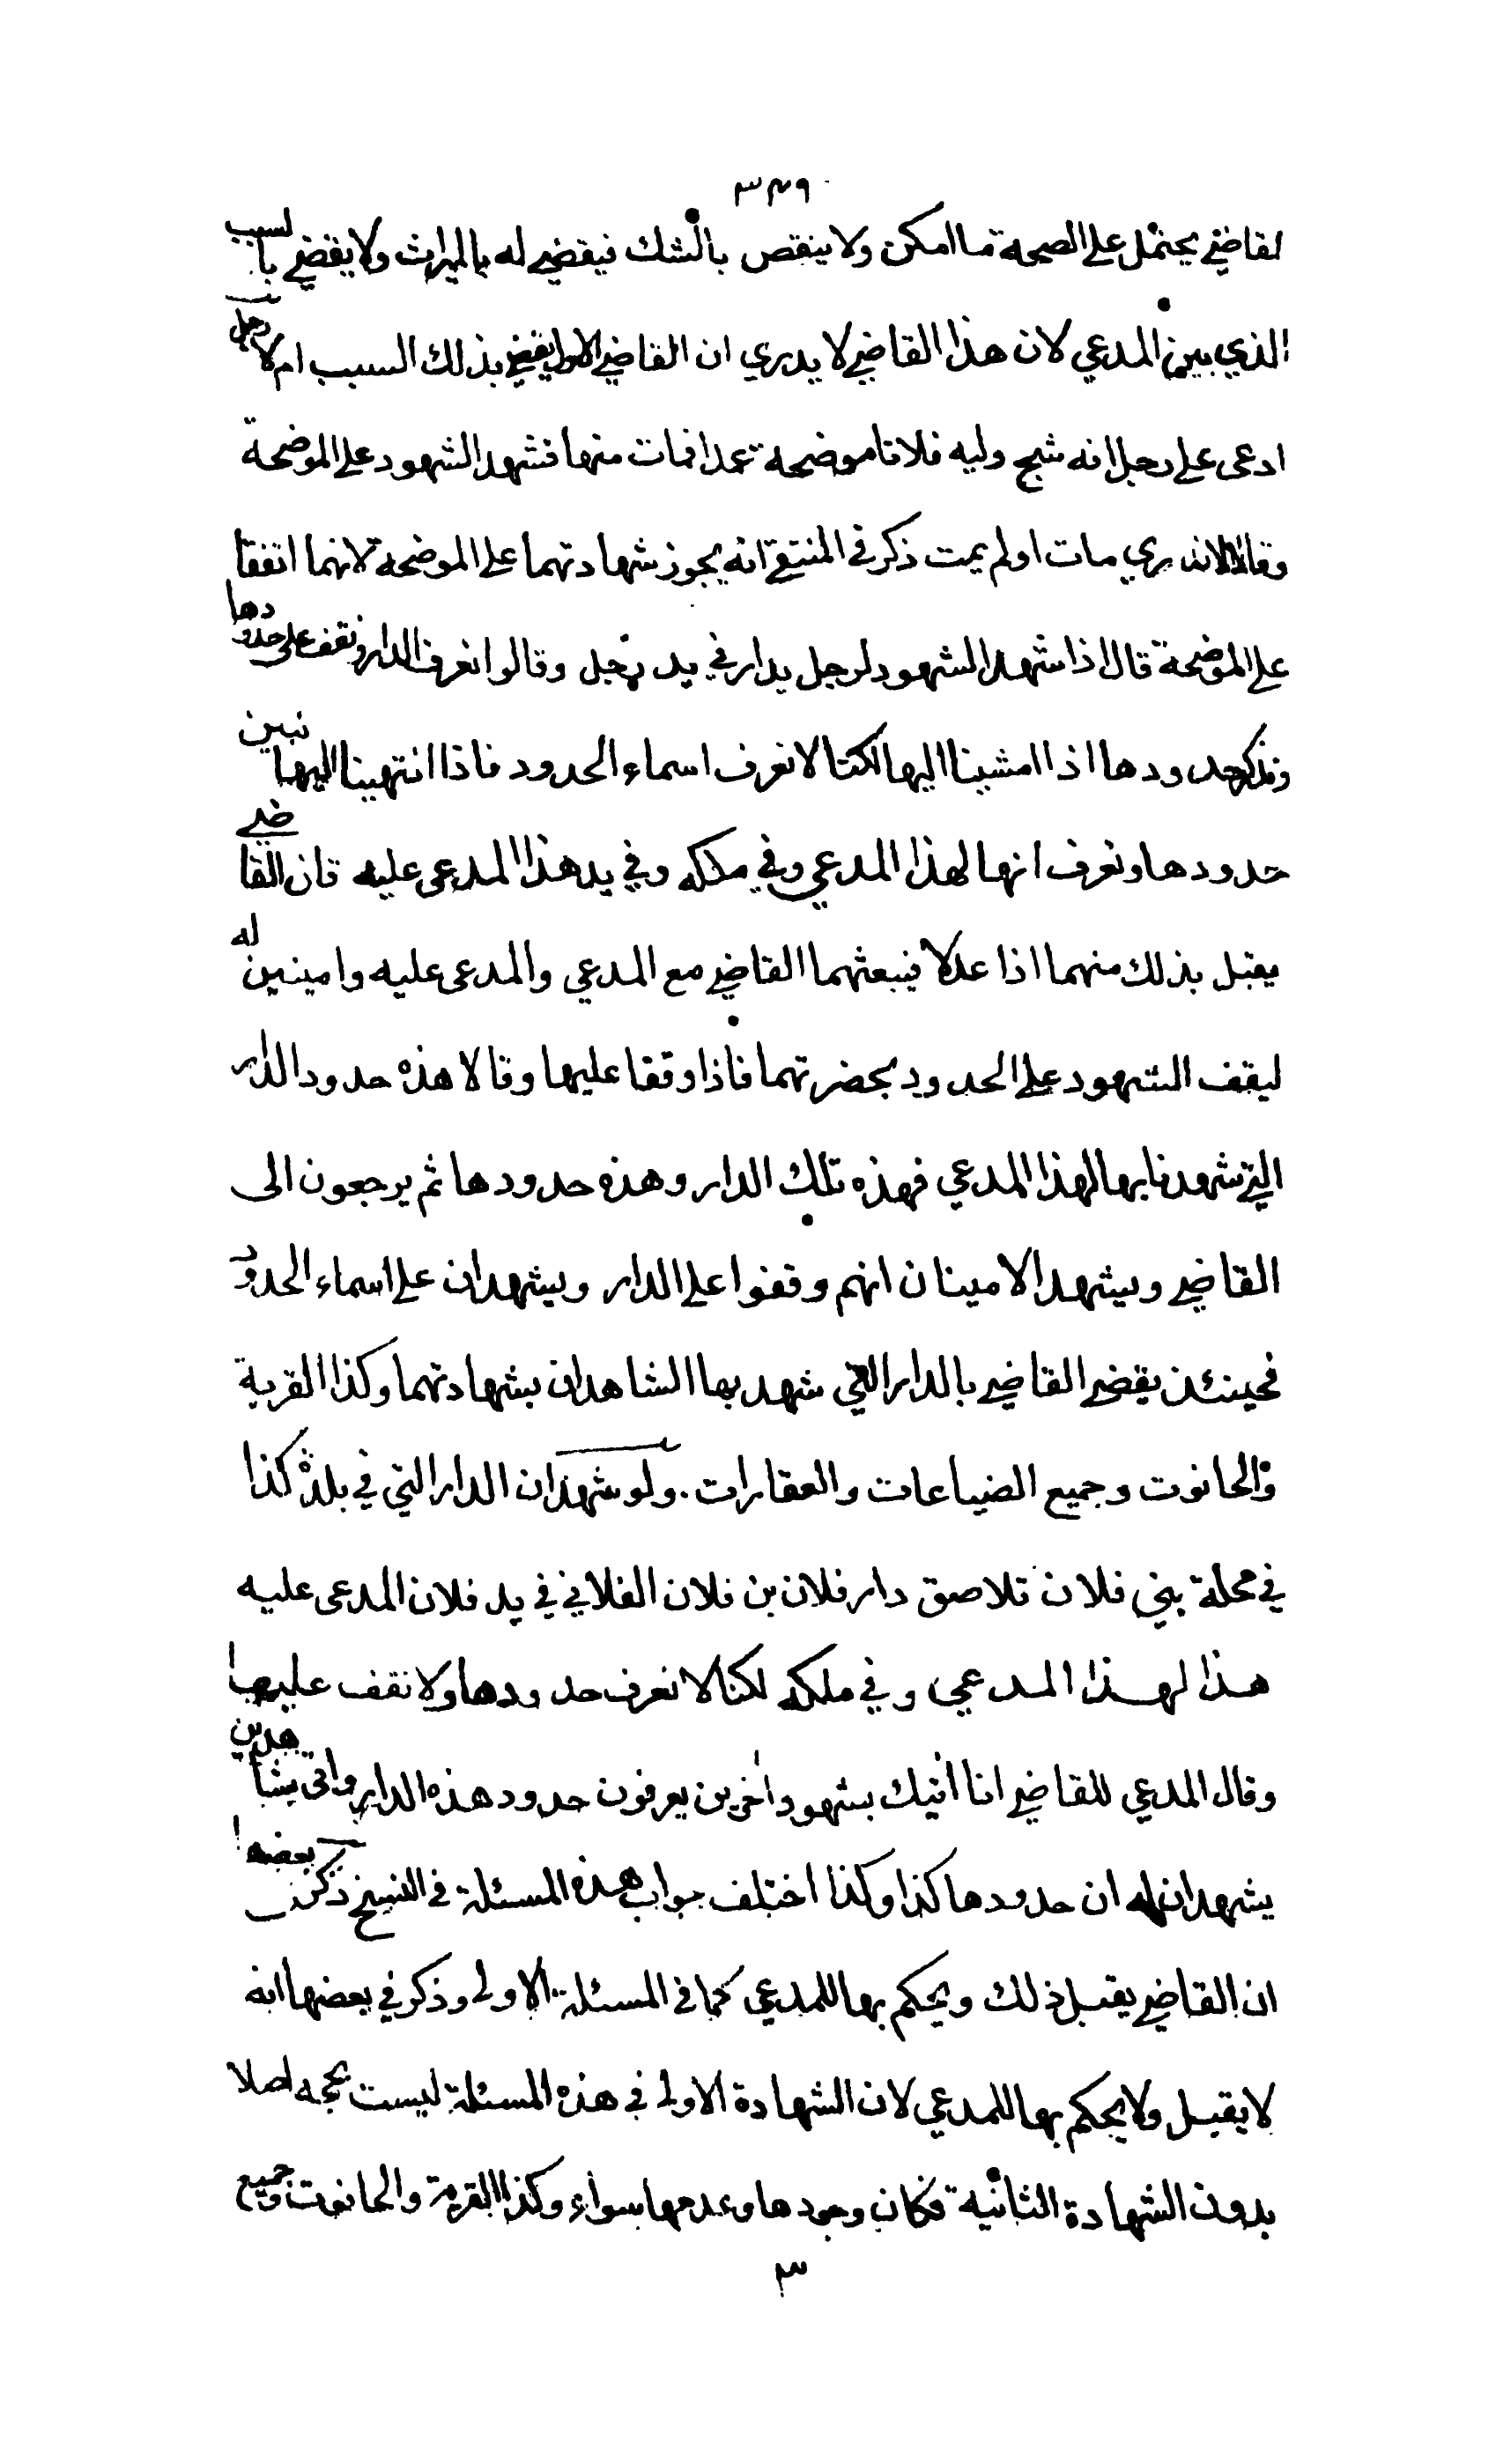 ٣٤٩
لقاضي يحتمل على الصحة ما امكن ولا ينقص بالشك فيقضي له بالميراث ولا يقضي بالسبب
الذي بين المدعي لان هذا القاضي لا يدري ان القاضي الاول يقضي بذلك السبب ام لا رجل
ادعى على رجل انه شج وليه فلانا موضحة عمدا فمات منها فشهد الشهود على الموضحة
وقالا لا ندري مات اولم يمت ذكر في المنتقى انه يجوز شهادتهما على الموضحة لانهما اتفقا
على الموضحة قال اذا شهد الشهود لرجل بدار في يد رجل وقالوا نعرف الدار ونقف على حدودها
ونذكر حدودها اذا امشينا اليها لكنا لا نعرف اسماء الحدود فاذا انتهينا اليها نبين
حدودها ونعرف انها لهذا المدعي وفي ملكه وفي يد هذا المدعى عليه فان القاضي
يقبل بذلك منهما اذا عدلا فيبعثهما القاضي مع المدعي والمدعى عليه وامينين له
ليقف الشهود على الحدود بحضرتهما فاذا وقفا عليها وقالا هذه حدود الدار
التي شهدنا بها لهذا المدعي فهذه تلك الدار وهذه حدودها ثم يرجعون الى
القاضي ويشهد الامينان انهم وقفوا على الدار ويشهدان على اسماء الحدود
فحينئذ يقضي القاضي بالدار التي شهد بها الشاهدان بشهادتهما وكذا القرية
والحانوت وجميع الضياعات والعقارات . ولو شهد ان الدار التي في بلدة كذا
في محلة بني فلان تلاصق دار فلان بن فلان الفلاني في يد فلان المدعى عليه
هذا لهذا المدعي وفي ملكه لكنا لا نعرف حدودها ولا نقف عليها
وقال المدعي للقاضي انا اتيك بشهود اخرين يعرفون حدود هذه الدار واتى بشاهدين
يشهدان له ان حدودها كذا وكذا اختلف جواب هذه المسئلة في النسخ ذكر في بعضها
ان القاضي يقبل ذلك ويحكم بها للمدعي كما في المسئلة الاولى وذكر في بعضها انه
لا يقبل ولا يحكم بها للمدعي لان الشهادة الاولى في هذه المسئلة ليست بحجه اصلا
بدون الشهادة الثانية فكان وجودها وعدمها سواء وكذا القرية والحانوت وجميع
٣